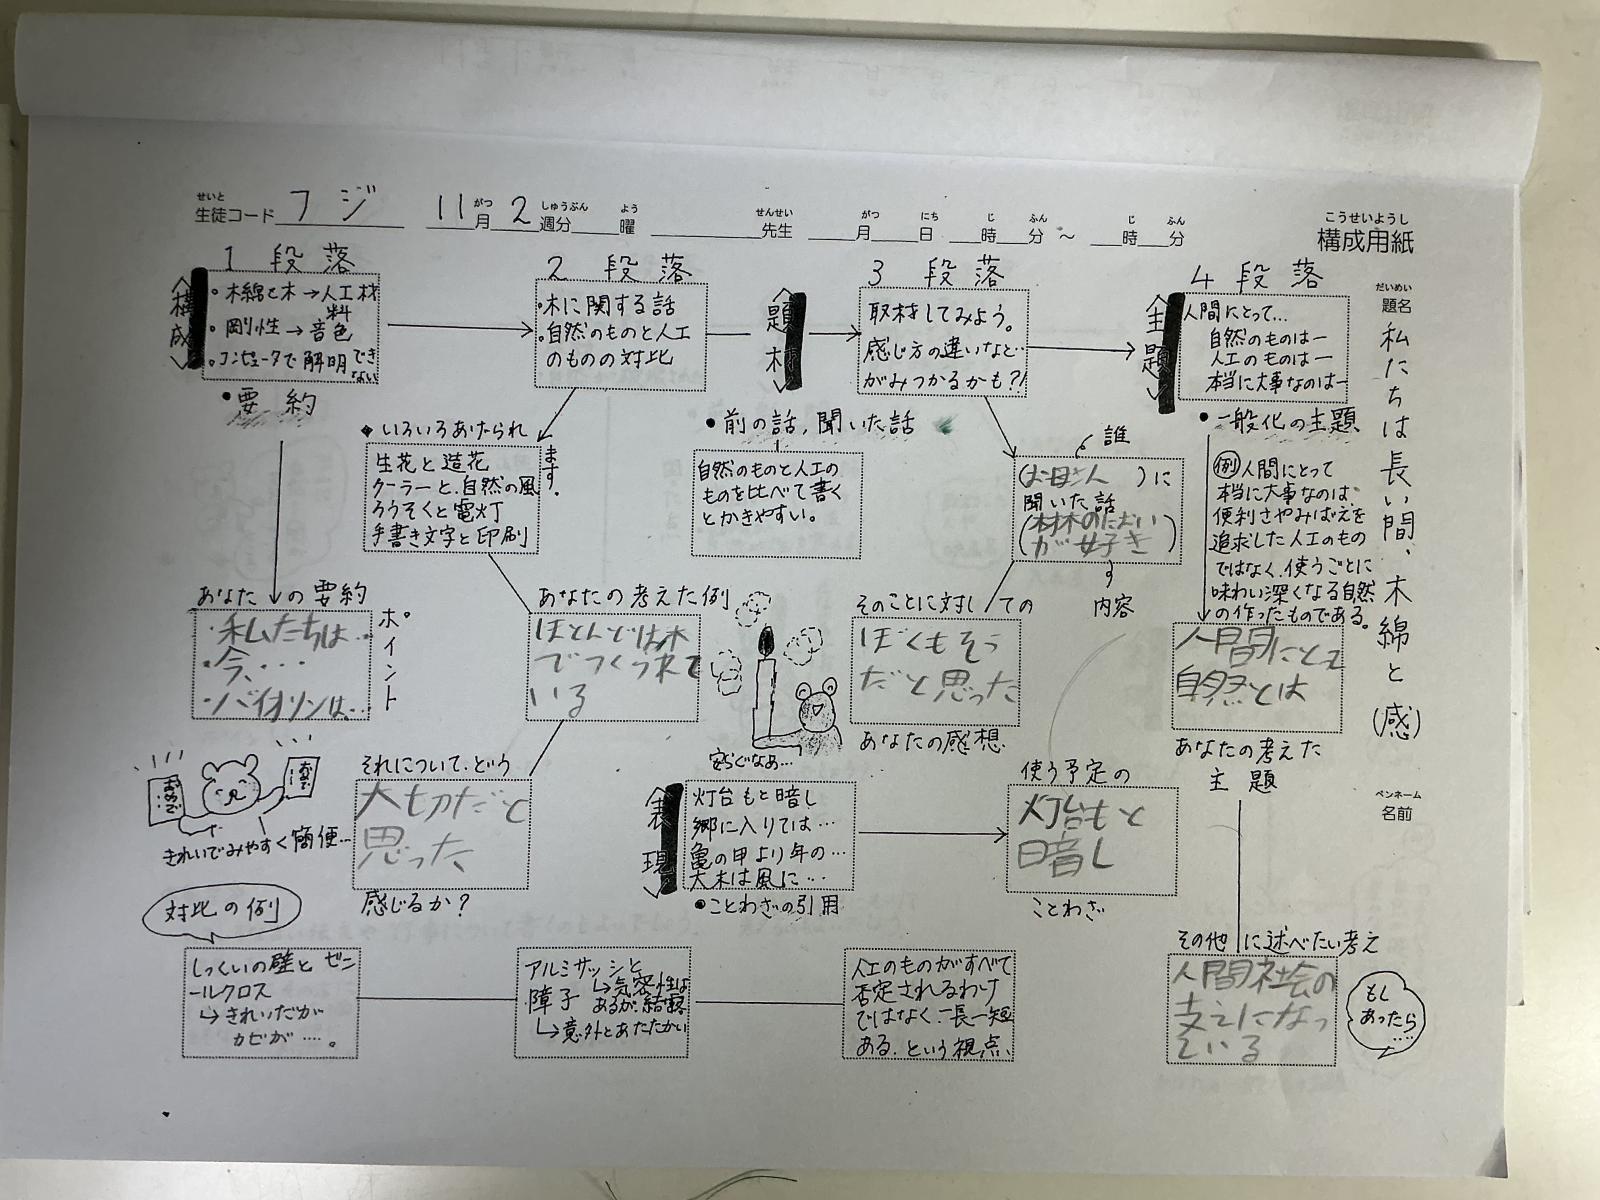 せいと
生徒コード フジ 11月 2週分 曜 先生 月 日 時 分 ～ 時 分
がつ しゅうぶん よう せんせい がつ にち じ ふん じ ふん
こうせいようし
構成用紙
だいめい
題名
私たちは長い間、木綿と(感)
ペンネーム
名前
1段落
構成
・木綿と木→人工材料
・剛性→音色
・コンピュータで解明できない
・要約
あなたの要約
・私たちは…
・今、・・・
・バイオリンは、…
ポイント
2段落
・木に関する話
・自然のものと人工
のものの対比
・いろいろあげられ
ます。
生花と造花
クーラーと、自然の風
ろうそくと電灯
手書き文字と印刷
あなたの考えた例
ほとんどは木
でつくられて
いる
それについて、どう
大切だと
思った
感じるか？
題材
・前の話,聞いた話
自然のものと人工の
ものを比べて書く
とかきやすい。
3段落
取材をしてみよう。
感じ方の違いなど…
がみつかるかも?!
誰
(お母さん)に
聞いた話
(材木のにおい
が好き)
内容
そのことに対しての
ぼくもそう
だと思った
あなたの感想
主題
4段落
人間にとって…
自然のものはー
人工のものはー
本当に大事なのはー
・一般化の主題
例 人間にとって
本当に大事なのは、
便利さやみばえを
追求した人工のもの
ではなく、使うごとに
味わい深くなる自然
の作ったものである。
人間にとって
自然とは
あなたの考えた
主題
その他に述べたい考え
人間社会の
支えになっ
ている
もし
あったら
….
安らぐなあ…
おめで
おめで
きれいでみやすく簡便…
表現
灯台もと暗し
郷に入りては…
亀の甲より年の…
大木は風に…
・ことわざの引用
使う予定の
灯台もと
暗し
ことわざ
対比の例
しっくいの壁とビニ
ールクロス
↳きれいだが
カビが….。
アルミサッシと
障子
↳気密性は
あるが、結露
↳意外とあたたかい
人工のものがすべて
否定されるわけ
ではなく、一長一短
ある。という視点、